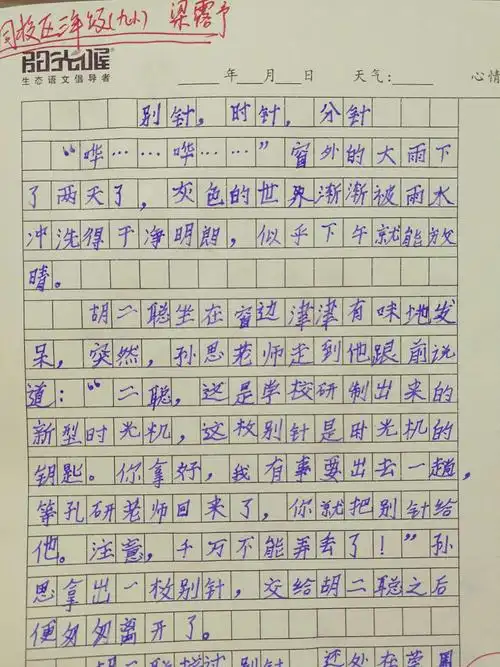 园校区三年级(九小) 梁露予
阳光喔
生态语文倡导者
年 月 日 天气: 心情
别针，时针，分针
“哗……哗……”窗外的大雨下
了两天了，灰色的世界渐渐被雨水
冲洗得干净明朗，似乎下午就能放
晴。
胡二聪坐在窗边津津有味地发
呆，突然，孙思老师走到他跟前说
道：“二聪，这是学校研制出来的
新型时光机，这枚别针是时光机的
钥匙。你拿好，我有事要出去一趟，
等孔研老师回来了，你就把别针给
他。注意，千万不能弄丢了！”孙
思拿出一枚别针，交给胡二聪之后
便匆匆离开了。
胡二聪接过别针 还处在